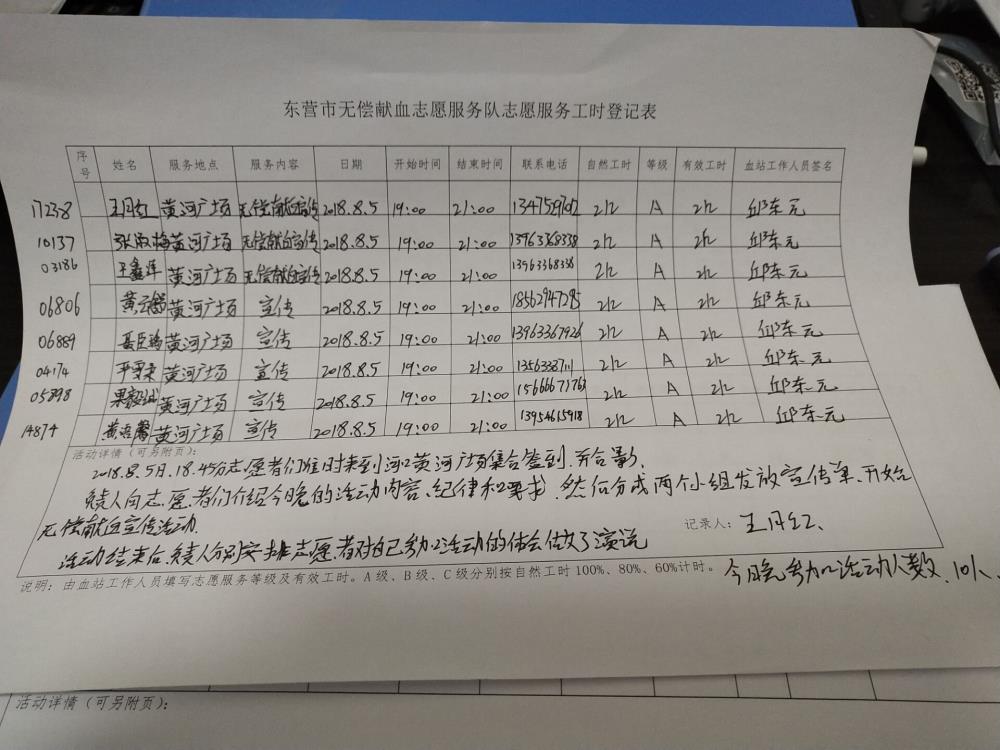 东营市无偿献血志愿服务队志愿服务工时登记表
序号 姓名 服务地点 服务内容 日期 开始时间 结束时间 联系电话 自然工时 等级 有效工时 血站工作人员签名
17238 王月红 黄河广场 无偿献血宣传 2018.8.5 19:00 21:00 2h A 2h 邱东元
10137 张淑梅 黄河广场 无偿献血宣传 2018.8.5 19:00 21:00 13963368338 2h A 2h 邱东元
03186 王鑫洋 黄河广场 无偿献血宣传 2018.8.5 19:00 21:00 13963368338 2h A 2h 邱东元
06806 黄河广场 宣传 2018.8.5 19:00 21:00 18562947285 2h A 2h 邱东元
06889 黄河广场 宣传 2018.8.5 19:00 21:00 13963367926 2h A 2h 邱东元
04174 黄河广场 宣传 2018.8.5 19:00 21:00 2h A 2h 邱东元
黄河广场 宣传 2018.8.5 19:00 21:00 15666671763 2h A 2h 邱东元
14874 黄河广场 宣传 2018.8.5 19:00 21:00 13954615918 2h A 2h 邱东元
活动详情（可另附页）:
2018.8.5日.18.45分志愿者们准时来到河口黄河广场集合签到.并合影.
负责人向志愿者们介绍今晚的活动内容、纪律和要求.然后分成两个小组发放宣传单.开始
无偿献血宣传活动.
记录人: 王月红.
活动结束后.负责人分别安排志愿者对自己参加活动的体会做了演说
说明：由血站工作人员填写志愿服务等级及有效工时。A级、B级、C级分别按自然工时100%、80%、60%计时。
今晚参加活动人数.10人.
活动详情（可另附页）: